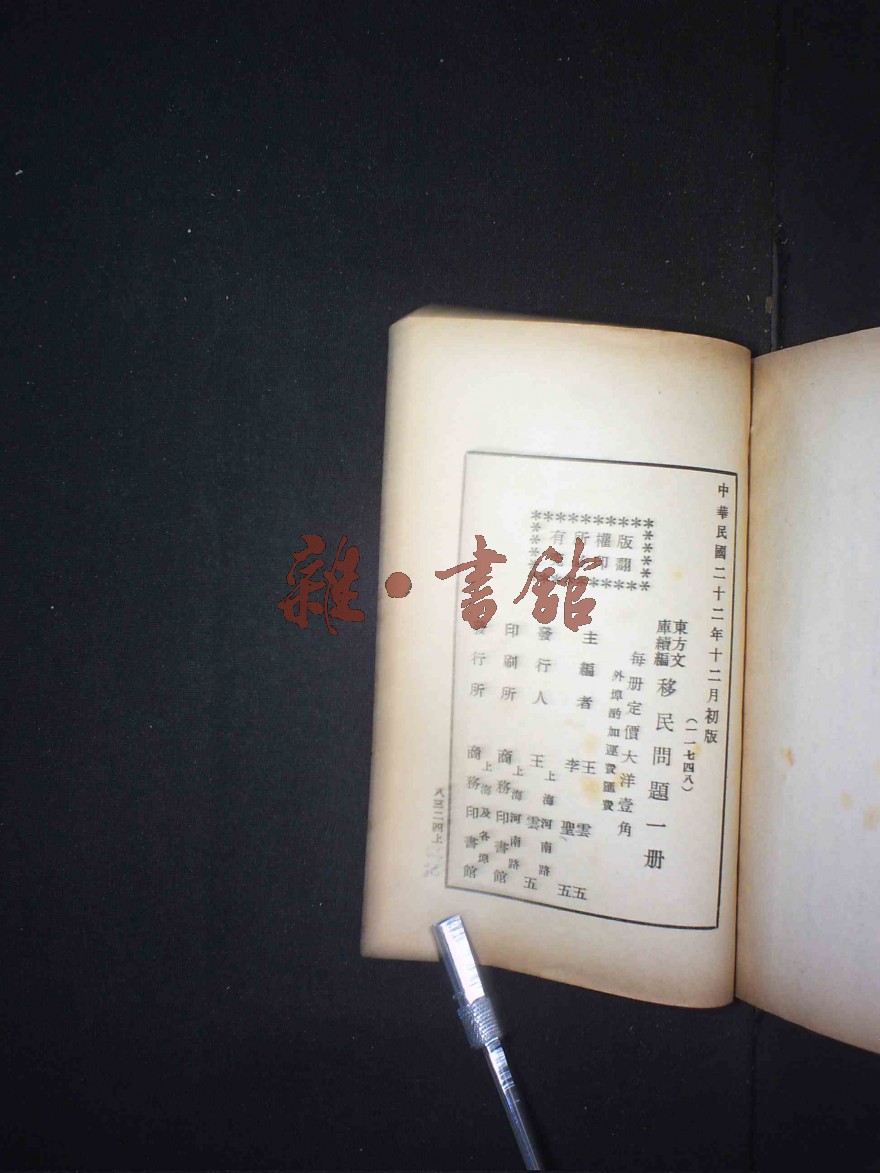 中華民國二十二年十二月初版
(一一七四八)
東方文
庫續編
移民問題一册
每册定價大洋壹角
外埠酌加運費匯費
版權所有
翻印
主編者 王雲五
李聖五
發行人 王雲五
上海河南路
印刷所 商務印書館
上海河南路
發行所 商務印書館
上海及各埠
八三二四上
雜·書館